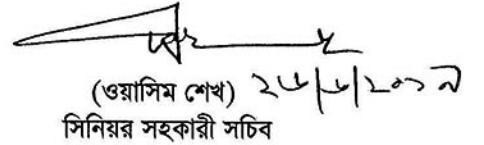 (ওয়াসিম শেখ) ২৬/৬/২০১৯
সিনিয়র সহকারী সচিব